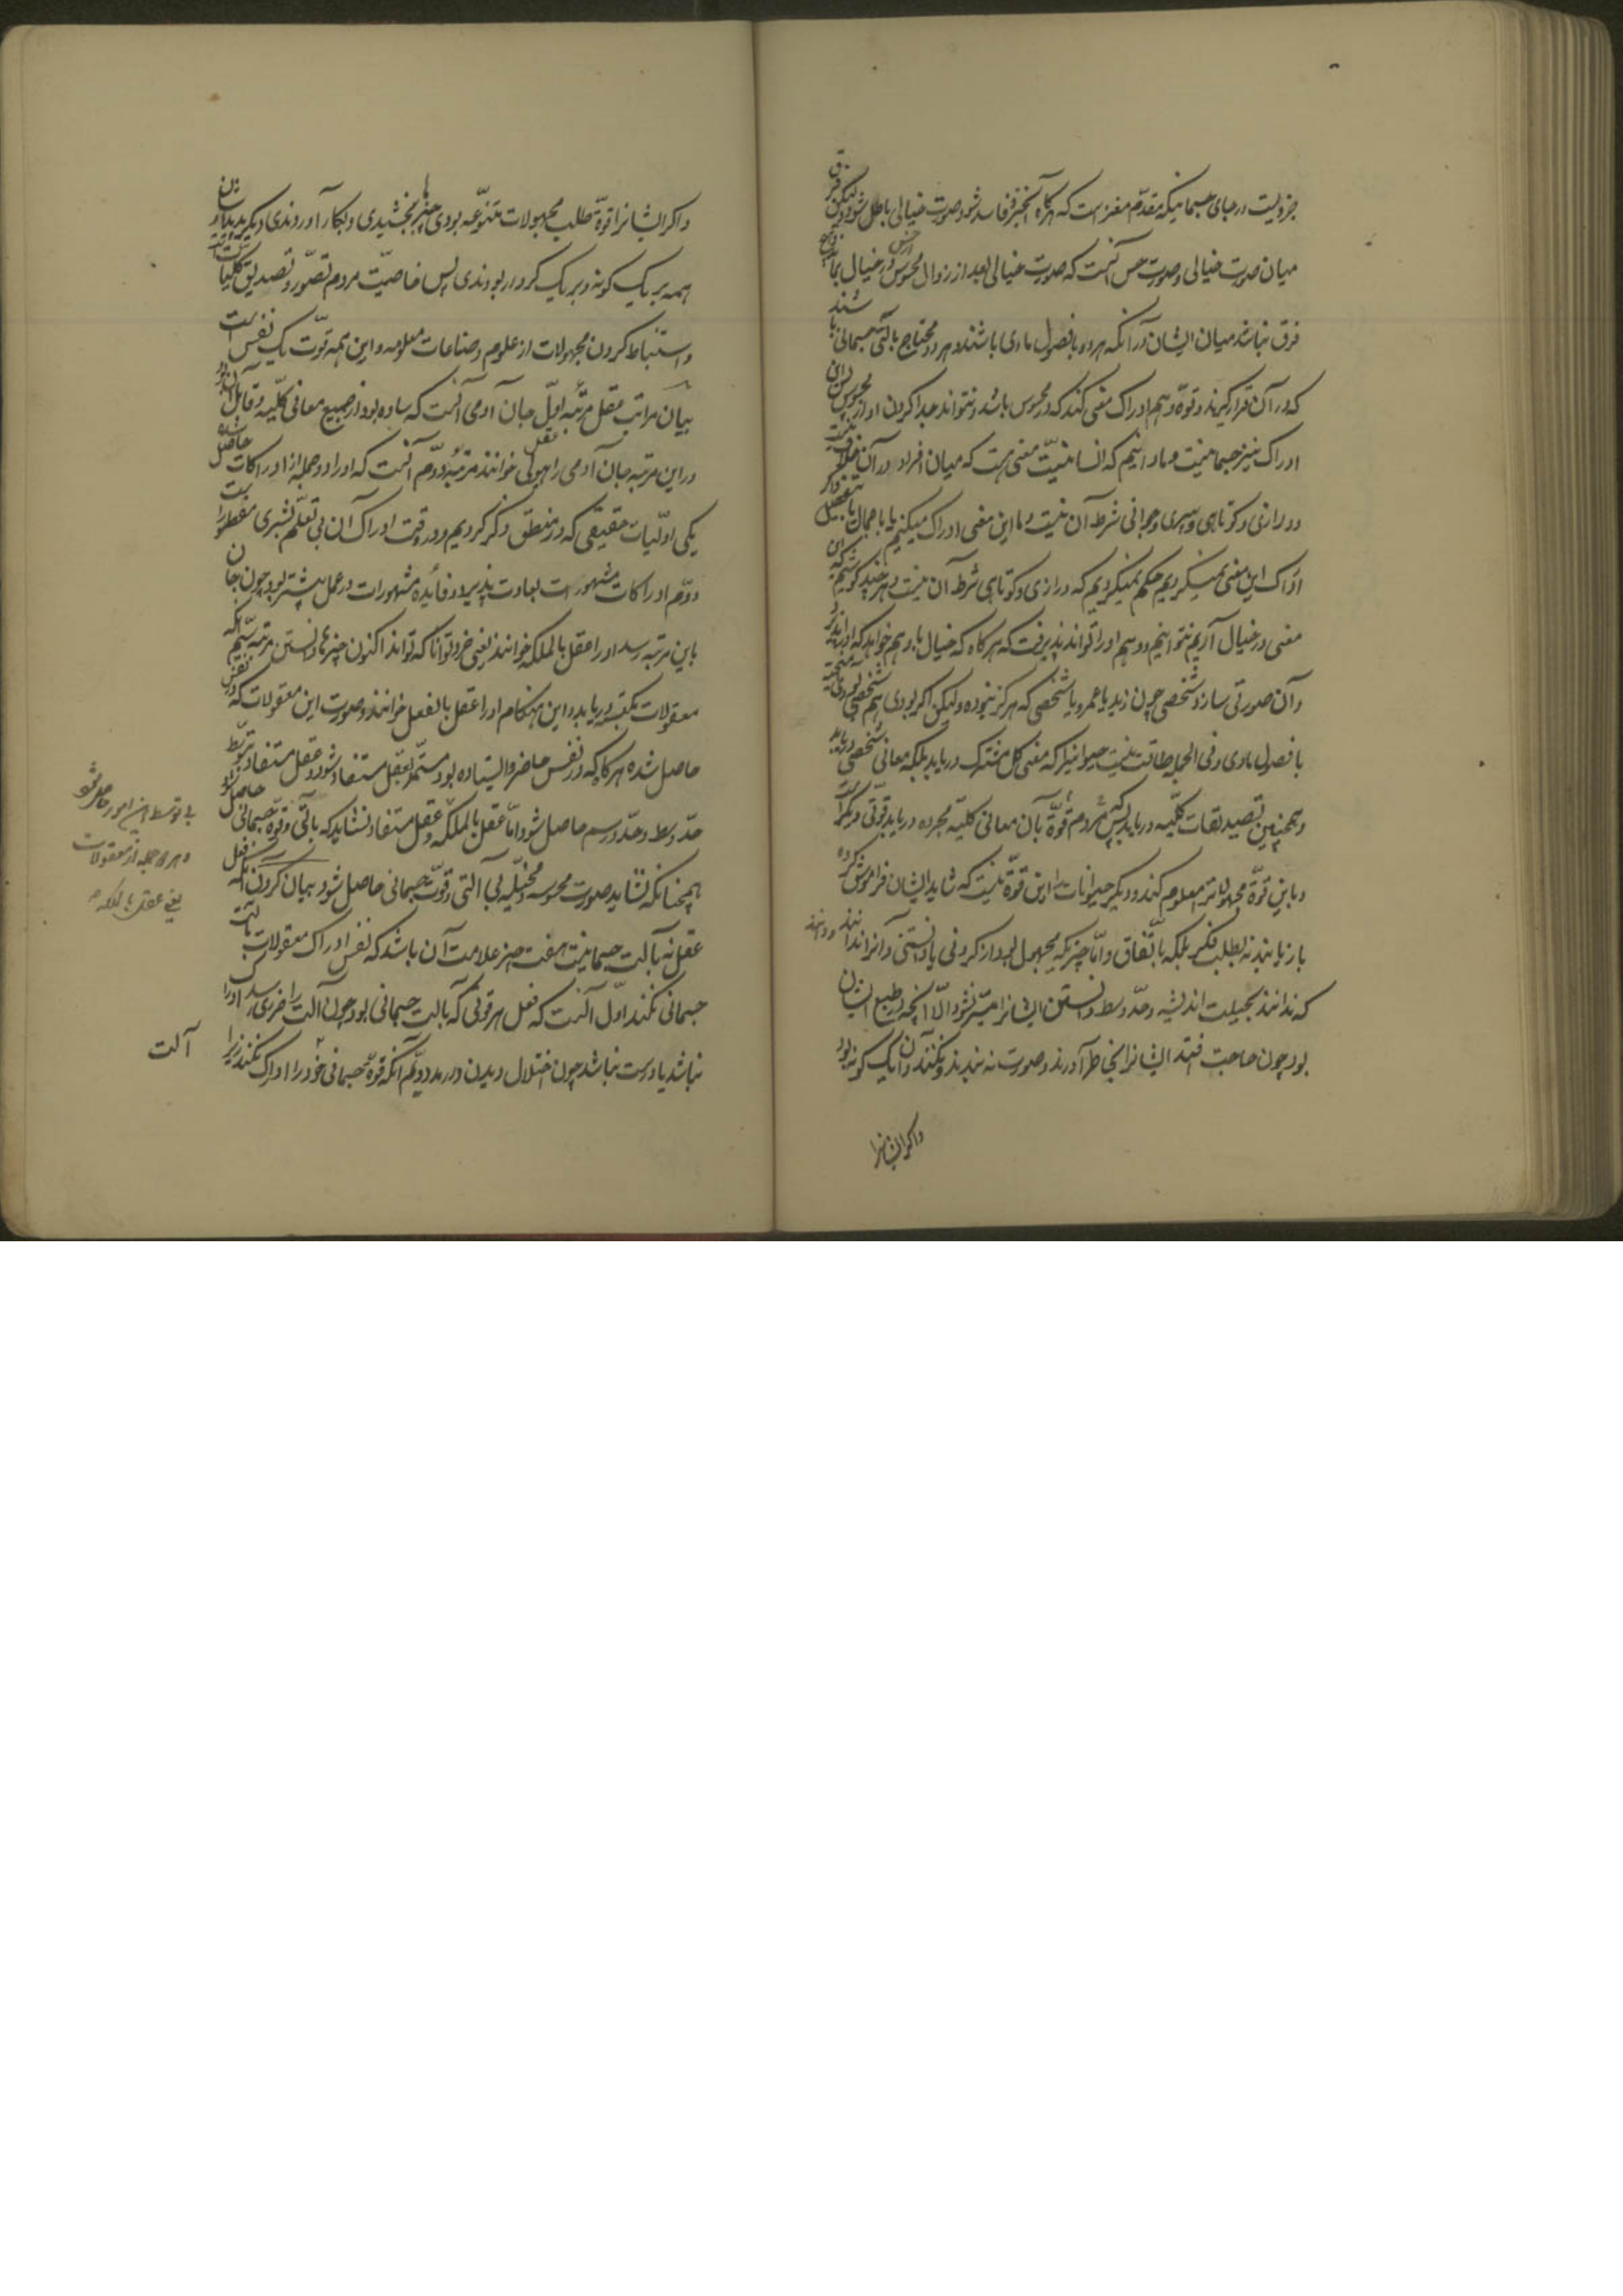 جزویست در جای جسمانیکه مقدم مغز است که هرگاه آنجزو فاسد شود صورت خیالی باطل شود و لیکن فرق
میان صورت خیالی و صورت حس آنست که صورت خیالی بعد از زوال محسوس از حس در خیال بماند
فرق نباشد میان ایشان در آنکه هر دو با فصول مادی باشند و هر دو محتاج بآلتی جسمانی باشند
که در آن قرار گیرند و قوه وهم ادراک معنی کند که در محسوس باشد و نتواند جدا کردن او از محسوس
ادراک نیز جسمانیست و ما دانیم که انسانیت معنی هست که میان افراد او در آن خلاف نیست
و درازی و کوتاهی و پیری و جوانی شرط آن نیست و ما این معنی ادراک میکنیم یا باجمال یا بتفصیل
ادراک این معنی نمیکردیم حکم نمیکردیم که درازی و کوتاهی شرط آن نیست و هر چند کوشیم که این
معنی در خیال آریم نتوانیم و وهم او را نتواند پذیرفت که هرگاه که خیال یا وهم خواهد که او را
و آن صورتی سازد شخصی چون زید یا عمرو یا شخصی که هرگز نبوده و لیکن اگر بودی هم شخصی بودی
با فصول مادی و فی الجمله طاقت نیست حیوانیرا که معنی کل مشترک دریابد بلکه معانی شخصی دریابد
و همچنین تصدیقات کلیه دریابد پس مردم قوه آن معانی کلیه مجرده دریابد بقوتی دیگر
و باین قوه مجهولاترا معلوم کند و دیگر حیوانات را این قوه نیست که شاید ایشان فراموش کرده
باز یابند نه بطلب فکر بلکه باتفاق و اما چیزیکه مجهول بود از کردنی یا دانستنی و آنرا ندانند و دانند
که ندانند بحیلت اندیشه و حد وسط دانستن ایشانرا میسر نشود الا آنچه در طبع ایشان
بود چون حاجت افتد ایشانرا بخاطر آورند و صورت نه بندند و نکنند آن را یک گونه بود
و اگر ایشانرا
و اگر ایشانرا قوه طلب مجهولات متنوعه بودی چیزها بخشیدی و بکار آوردندی دیگر
همه بر یک گونه و بر یک کردار بودندی پس خاصیت مردم تصور و تصدیق کلیات
و استنباط کردن مجهولات از علوم و صناعات معلومه و این همه قوت یک نفس است
بیان مراتب عقل مرتبه اول جان آدمی آنست که ساده بود از جمیع معانی کلیه و قابل آن بود
در این مرتبه جان آدمی را عقل هیولی خوانند مرتبه دوم آنست که او را دو جمله از ادراکات حاصل شده
یکی اولیات حقیقی که در منطق ذکر کردیم و در وقت ادراک آن بی تعلم بشری مفطور است
دوم ادراکات مشهور است بعادت پذیرد و فایده مشهورات در عمل بیشتر بود چون جان
باین مرتبه رسد او را عقل بالملکه خوانند یعنی خرد توانا که تواند اکنون چیزها دانستن مرتبه سیم آنکه
معقولات مکتسبه دریابد و این هنگام او را عقل بالفعل خوانند و صورت این معقولات که در نفس
حاصل شده هرگاه که در نفس حاضر و ایستاده بود مستمر بعقل مستفاد شود و عقل مستفاد بتوسط
حد وسط و حد و رسم حاصل شود اما عقل بالملکه و عقل مستفاد نشاید که بآلتی و قوه جسمانی حاصل شود
همچنانکه نشاید صورت محسوسه و مخیله بی آلتی و قوت جسمانی حاصل شود بیان کردن آنکه فعل
عقل نه بآلت جسمانیست هفت چیز علامت آن باشد که نفس ادراک معقولات بآلت
جسمانی نکند اول آنست که فعل هر قوتی که بآلت جسمانی بود چون آلت را ضرری رسد او را
نباشد یا درست نباشد چون اختلال دیدن در رمد دویم آنکه قوه جسمانی خود را ادراک نکند زیرا
آلت
بی توسط این امور حاصل شود
و هر دو جمله از معقولات
یعنی عقل بالملکه